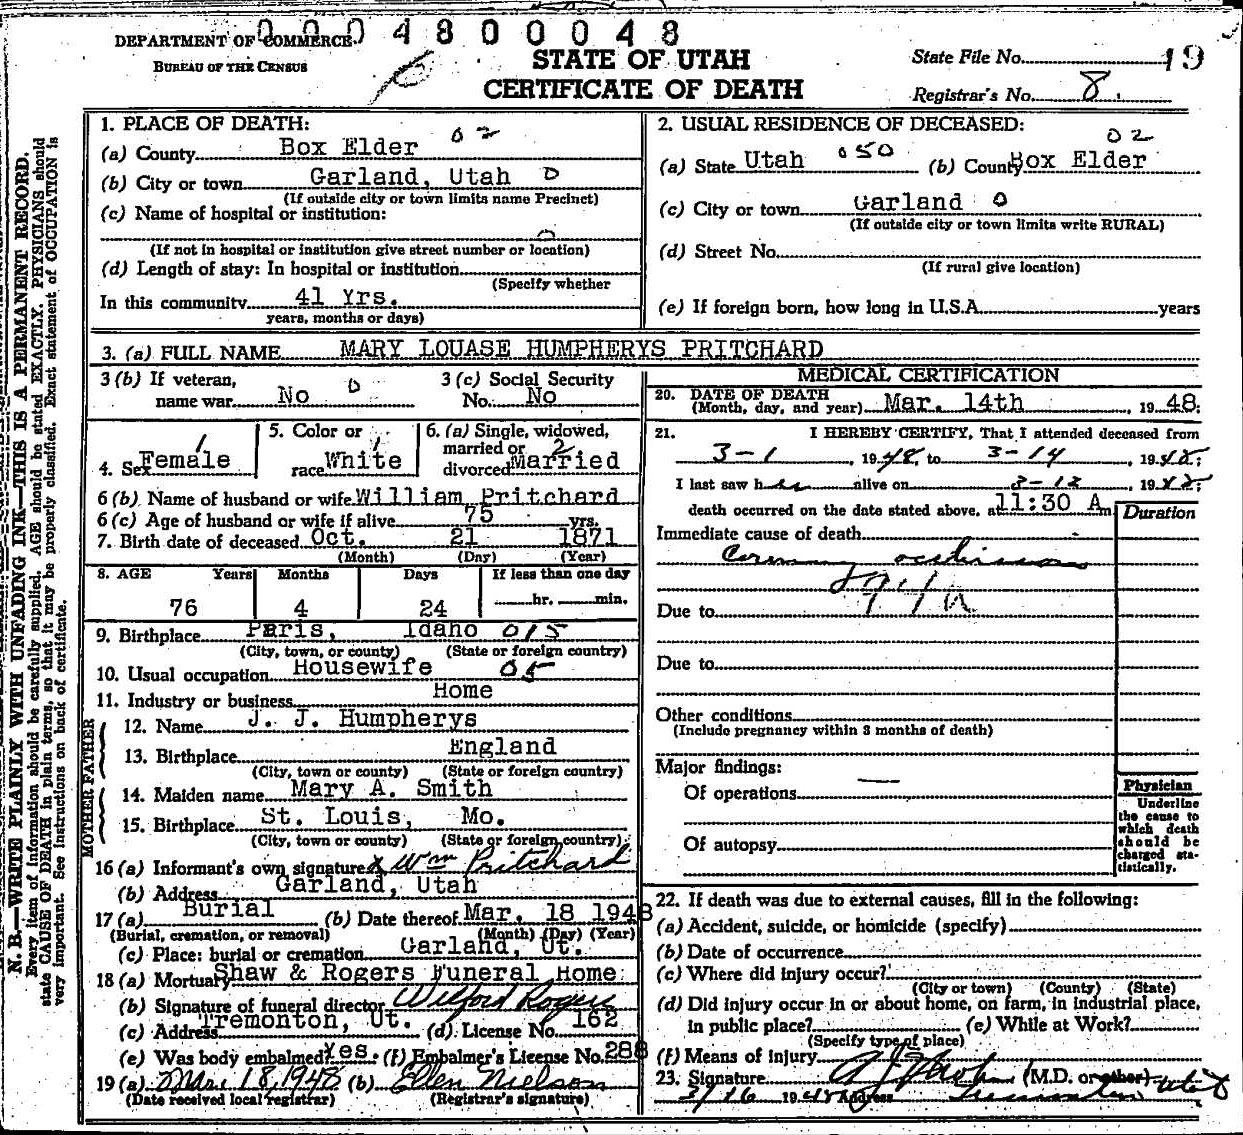 000480 0048
DEPARTMENT OF COMMERCE
BUREAU OF THE CENSUS
STATE OF UTAH
CERTIFICATE OF DEATH
State File No. 19
Registrar's No. 8
N. B.—WRITE PLAINLY WITH UNFADING INK—THIS IS A PERMANENT RECORD.
Every item of information should be carefully supplied. AGE should be stated EXACTLY. PHYSICIANS should
state CAUSE OF DEATH in plain terms, so that it may be properly classified. Exact statement of OCCUPATION is
very important. See instructions on back of certificate.
1. PLACE OF DEATH: 02
(a) County Box Elder
(b) City or town Garland, Utah 0
(If outside city or town limits name Precinct)
(c) Name of hospital or institution:
(If not in hospital or institution give street number or location)
(d) Length of stay: In hospital or institution
(Specify whether
In this community 41 Yrs.
years, months or days)
2. USUAL RESIDENCE OF DECEASED: 02
(a) State Utah 050 (b) County Box Elder
(c) City or town Garland 0
(If outside city or town limits write RURAL)
(d) Street No.
(If rural give location)
(e) If foreign born, how long in U.S.A. years
3. (a) FULL NAME MARY LOUASE HUMPHERYS PRITCHARD
3 (b) If veteran, name war No 0
3 (c) Social Security No. No
4. Sex Female 1
5. Color or race White 1
6. (a) Single, widowed, married or divorced Married 2
6 (b) Name of husband or wife William Pritchard
6 (c) Age of husband or wife if alive 75 yrs.
7. Birth date of deceased Oct. 21 1871
(Month) (Day) (Year)
8. AGE Years Months Days If less than one day
76 4 24 hr. min.
9. Birthplace Paris, Idaho 015
(City, town, or county) (State or foreign country)
10. Usual occupation Housewife 05
11. Industry or business Home
FATHER
12. Name J. J. Humpherys
13. Birthplace England
(City, town or county) (State or foreign country)
MOTHER
14. Maiden name Mary A. Smith
15. Birthplace St. Louis, Mo.
(City, town or county) (State or foreign country)
16 (a) Informant's own signature x Wm Pritchard
(b) Address Garland, Utah
17 (a) Burial (b) Date thereof Mar. 18 1948
(Burial, cremation, or removal) (Month) (Day) (Year)
(c) Place: burial or cremation Garland, Ut.
18 (a) Mortuary Shaw & Rogers Funeral Home
(b) Signature of funeral director Wilford Rogers
(c) Address Tremonton, Ut. (d) License No. 162
(e) Was body embalmed? Yes. (f) Embalmer's License No. 288
19 (a) Mar. 18, 1948 (b) Ellen Nielson
(Date received local registrar) (Registrar's signature)
MEDICAL CERTIFICATION
20. DATE OF DEATH
(Month, day, and year) Mar. 14th, 1948:
21. I HEREBY CERTIFY, That I attended deceased from
3-1, 1948, to 3-14, 1948;
I last saw her alive on 3-13, 1948;
death occurred on the date stated above, at 11:30 A m
Duration
Immediate cause of death
Coronary occlusion
94a
Due to
Due to
Other conditions
(Include pregnancy within 3 months of death)
Major findings: —
Of operations
Of autopsy
Physician
Underline
the cause to
which death
should be
charged sta-
tistically.
22. If death was due to external causes, fill in the following:
(a) Accident, suicide, or homicide (specify)
(b) Date of occurrence
(c) Where did injury occur?
(City or town) (County) (State)
(d) Did injury occur in or about home, on farm, in industrial place,
in public place? (e) While at Work?
(Specify type of place)
(f) Means of injury
23. Signature (M.D. or other)
3/16 1948 Address Tremonton Utah